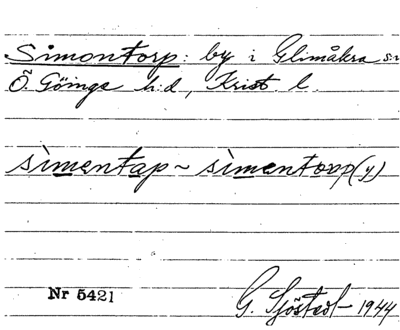 Simontorp: by i Glimåkra sn
Ö. Göinge h:d, Krist. l.
sìmentap ~ sìmentorp(y)
Nr 5421
G. Sjöstedt 1944